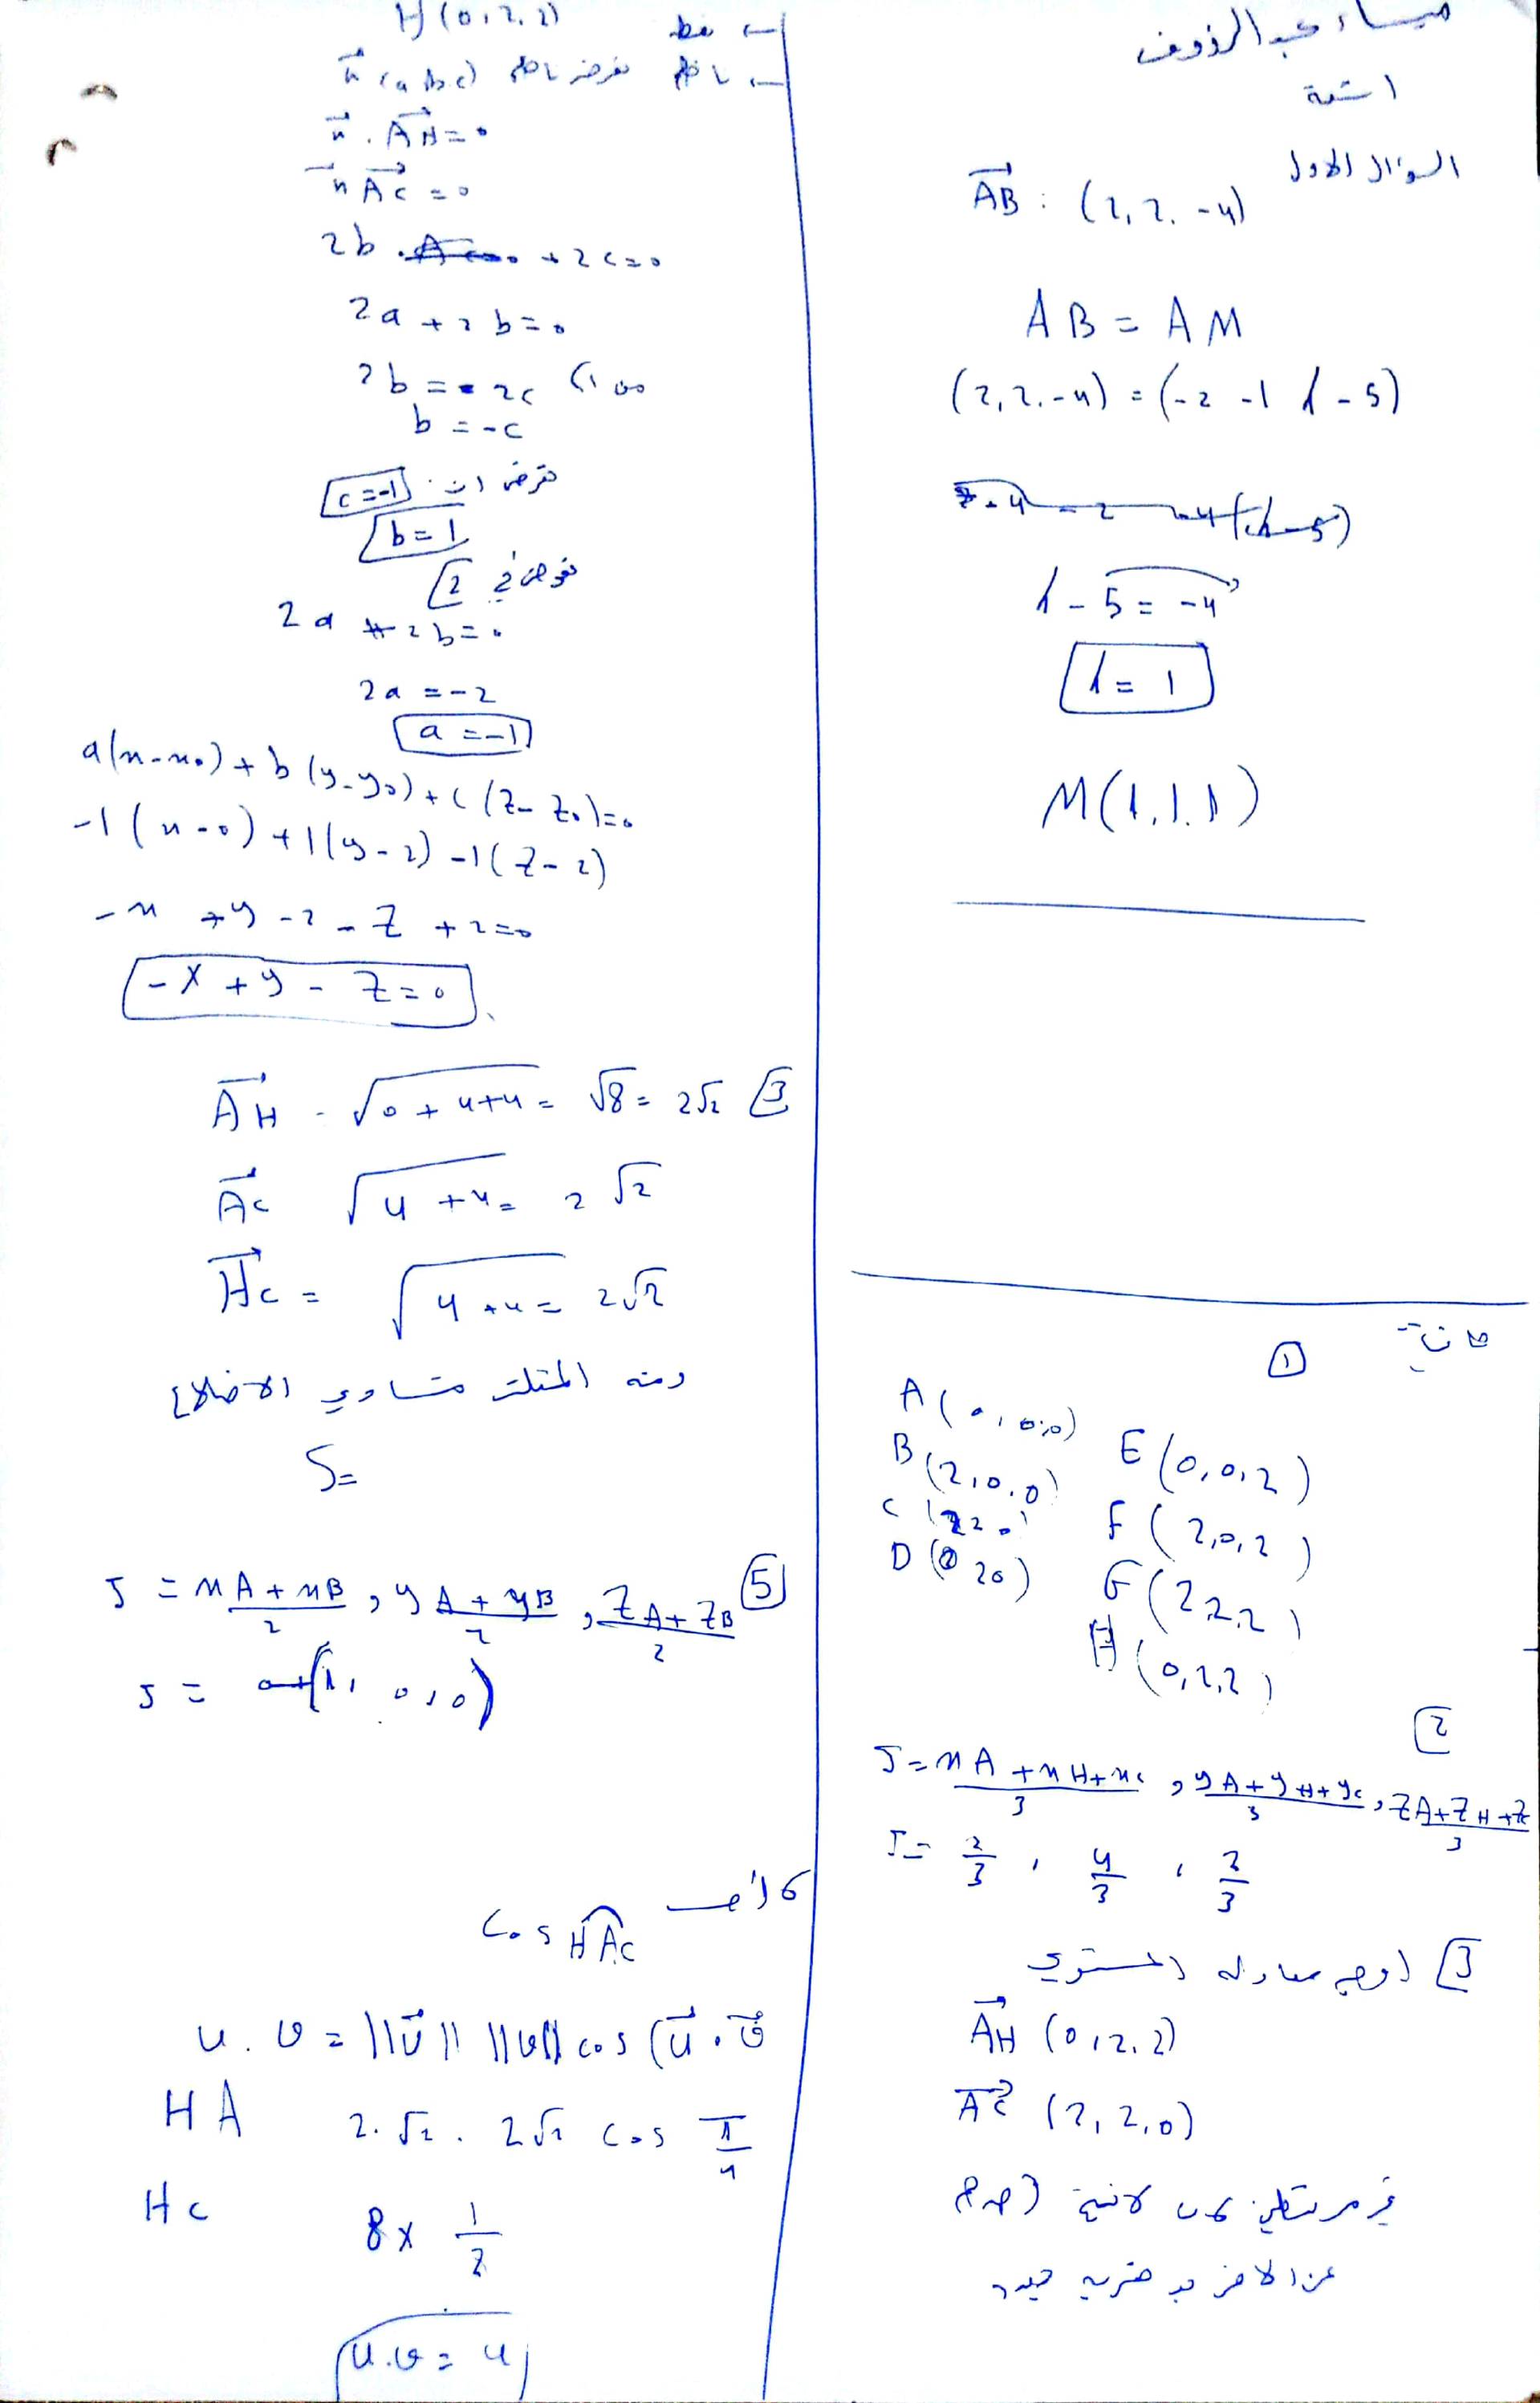 ميساء عبد الرؤوف
السؤال الاول
AB : (2, 2, -4)
AB = AM
(2, 2, -4) = (-2 -1 λ-5)
λ - 5 = -4
λ = 1
M(1, 1, 1)
ثانيا
①
A(0, 0, 0)
B(2, 0, 0)
C(2 2 0)
D(0 2 0)
E(0, 0, 2)
F(2, 0, 2)
G(2 2, 2)
H(0, 2, 2)
2
J = xA + xH + xC / 3 , yA + yH + yC / 3 , zA + zH + zC / 3
J = 2/3 , 4/3 , 2/3
3 اوجد معادلة المستوي
AH (0, 2, 2)
AC (2, 2, 0)
غير مرتبطين
H(0, 2, 2) نقطة
ناظم نفرض ناظم n(a b c)
n . AH = 0
n AC = 0
2b + 2c = 0
2a + 2b = 0
من 1) 2b = -2c
b = -c
نفرض ان c = -1
b = 1
نعوض في 2
2a + 2b = 0
2a = -2
a = -1
a(x-x0) + b(y-y0) + c(z-z0) = 0
-1(x-0) + 1(y-2) -1(z-2)
-x + y - 2 - z + 2 = 0
-x + y - z = 0
3 AH = √0+4+4 = √8 = 2√2
AC √4+4 = 2√2
HC = √4+4 = 2√2
ومنه المثلث متساوي الاضلاع
S =
⑤ J = xA + xB / 2 , yA + yB / 2 , zA + zB / 2
J = (1, 0, 0)
cos HAC
u . v = ||u|| ||v|| cos (u . v
HA 2.√2 . 2√2 cos π/4
HC 8 x 1/2
u.v = 4